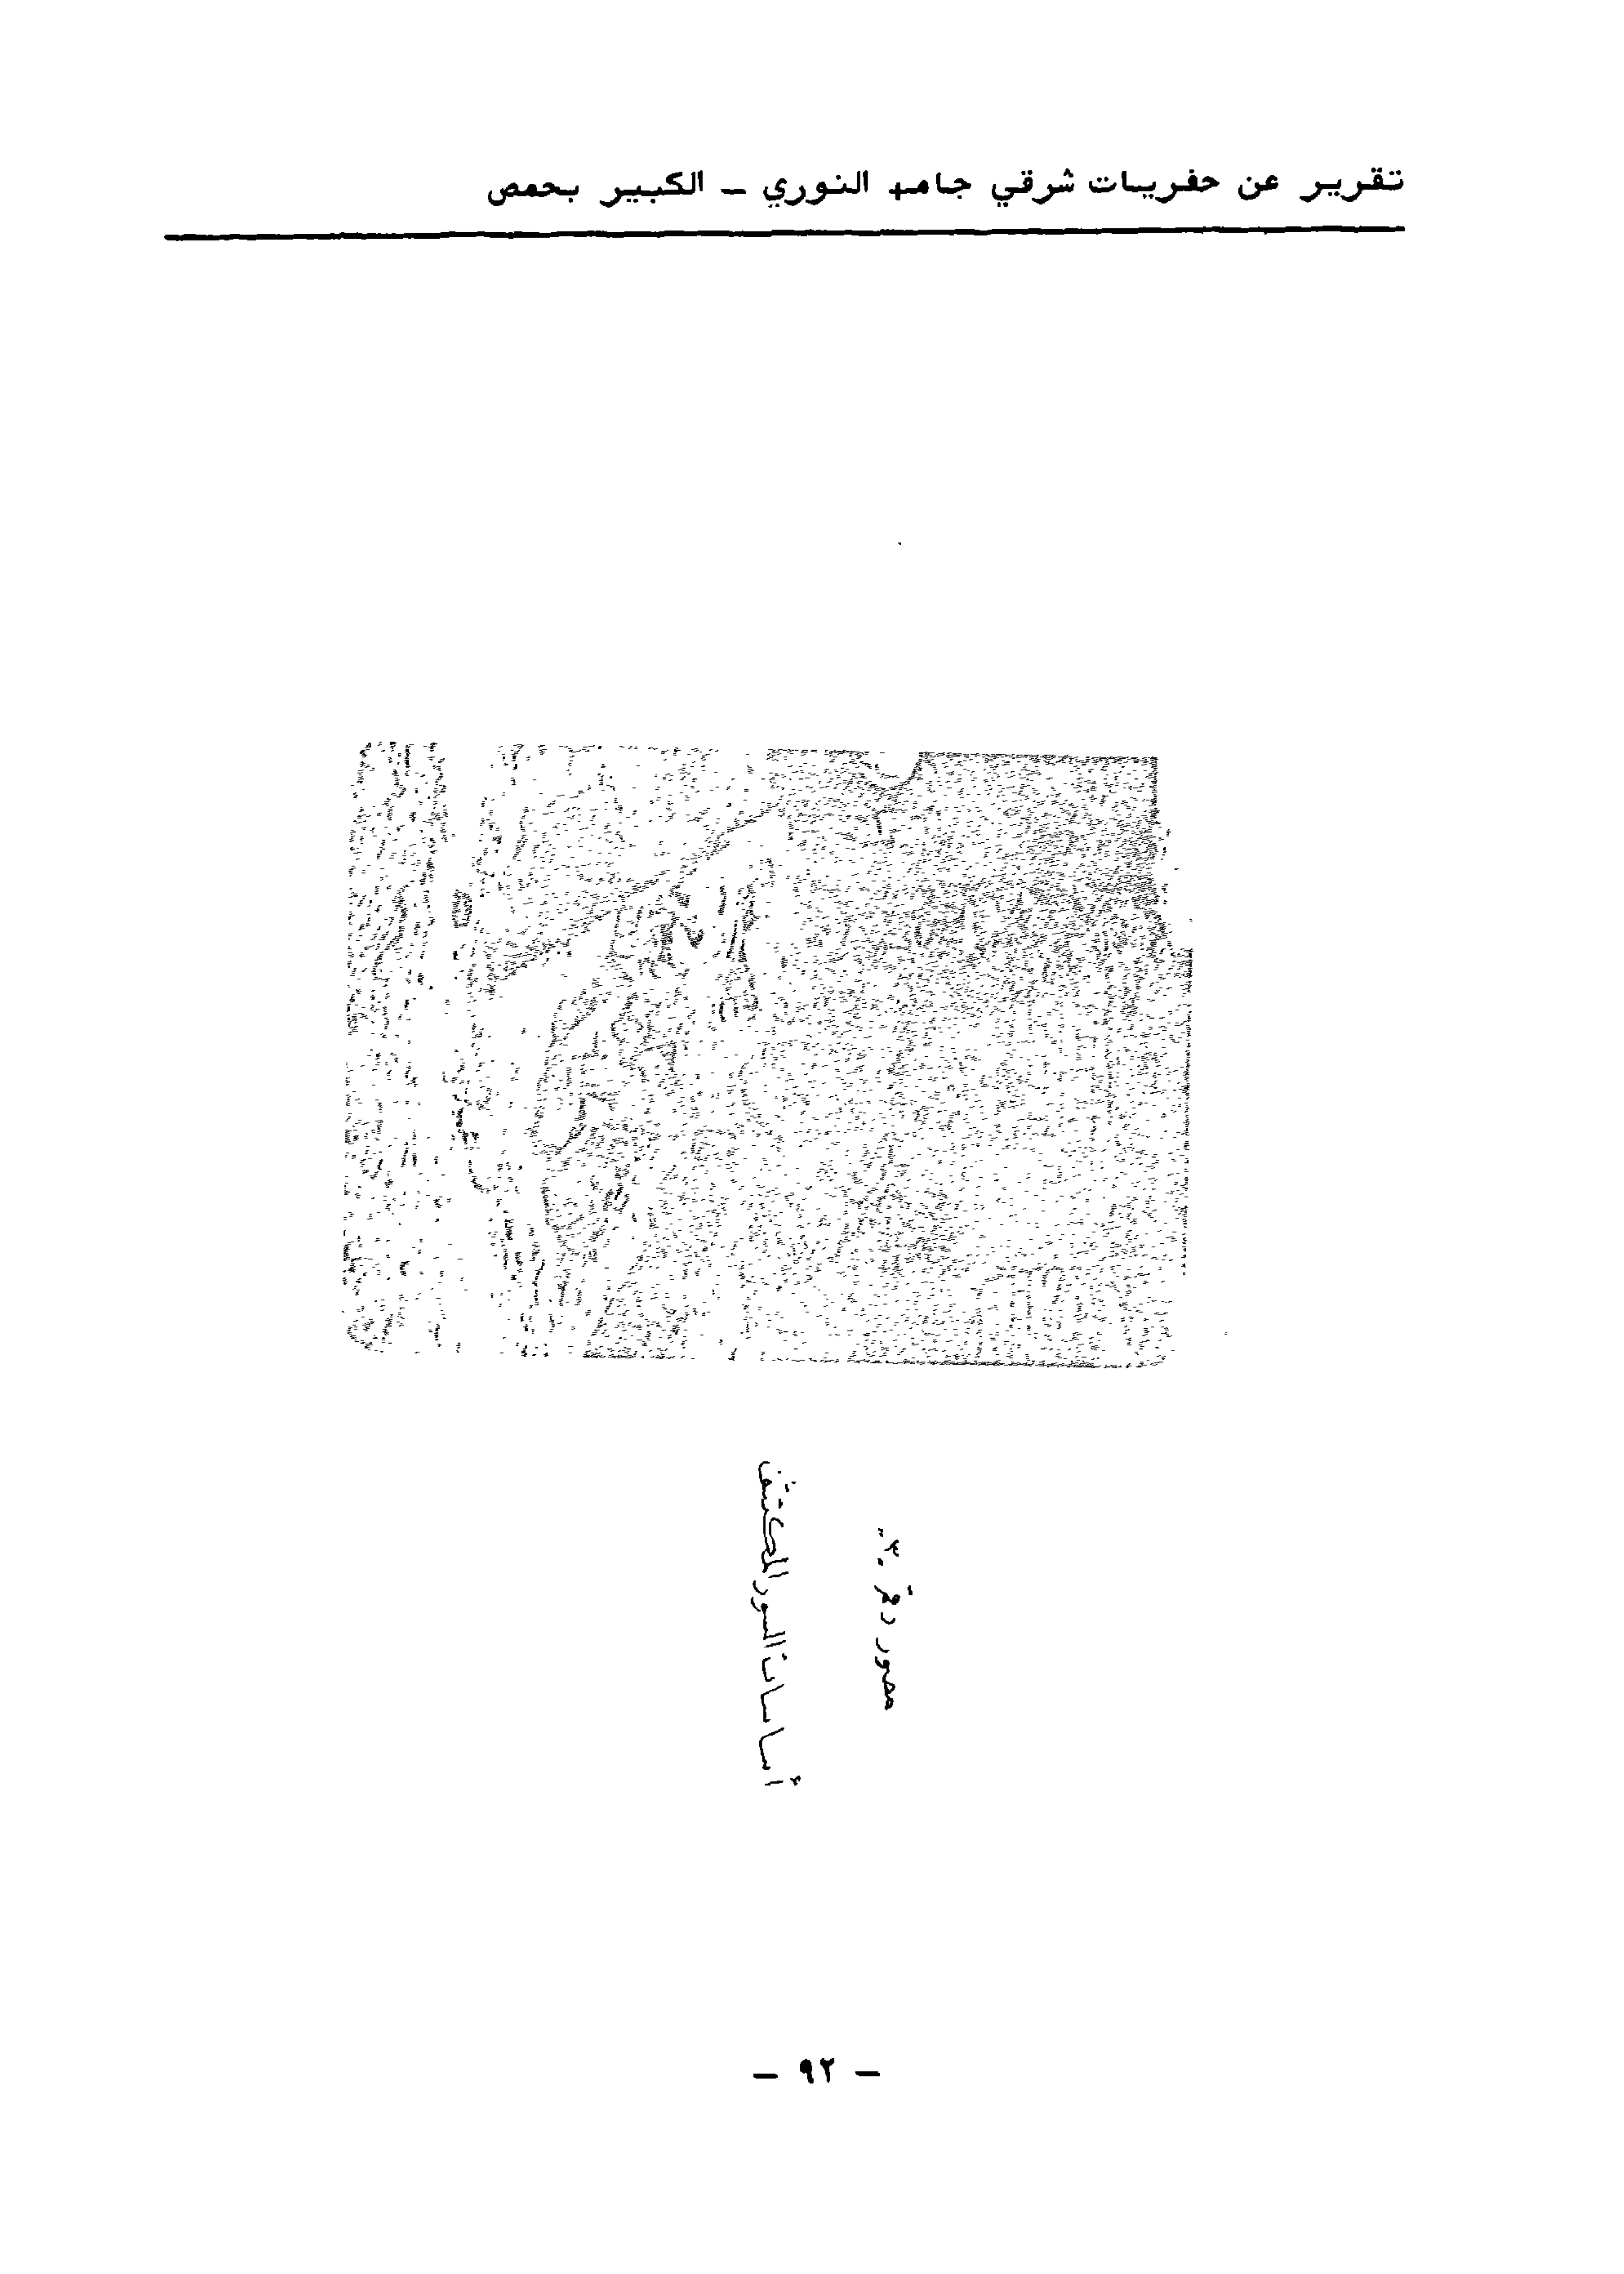 تقرير عن حفريات شرقي جامع النوري - الكبير بحمص
مصور رقم ٣٠
أساسات السور المكتشف
- ٩٢ -